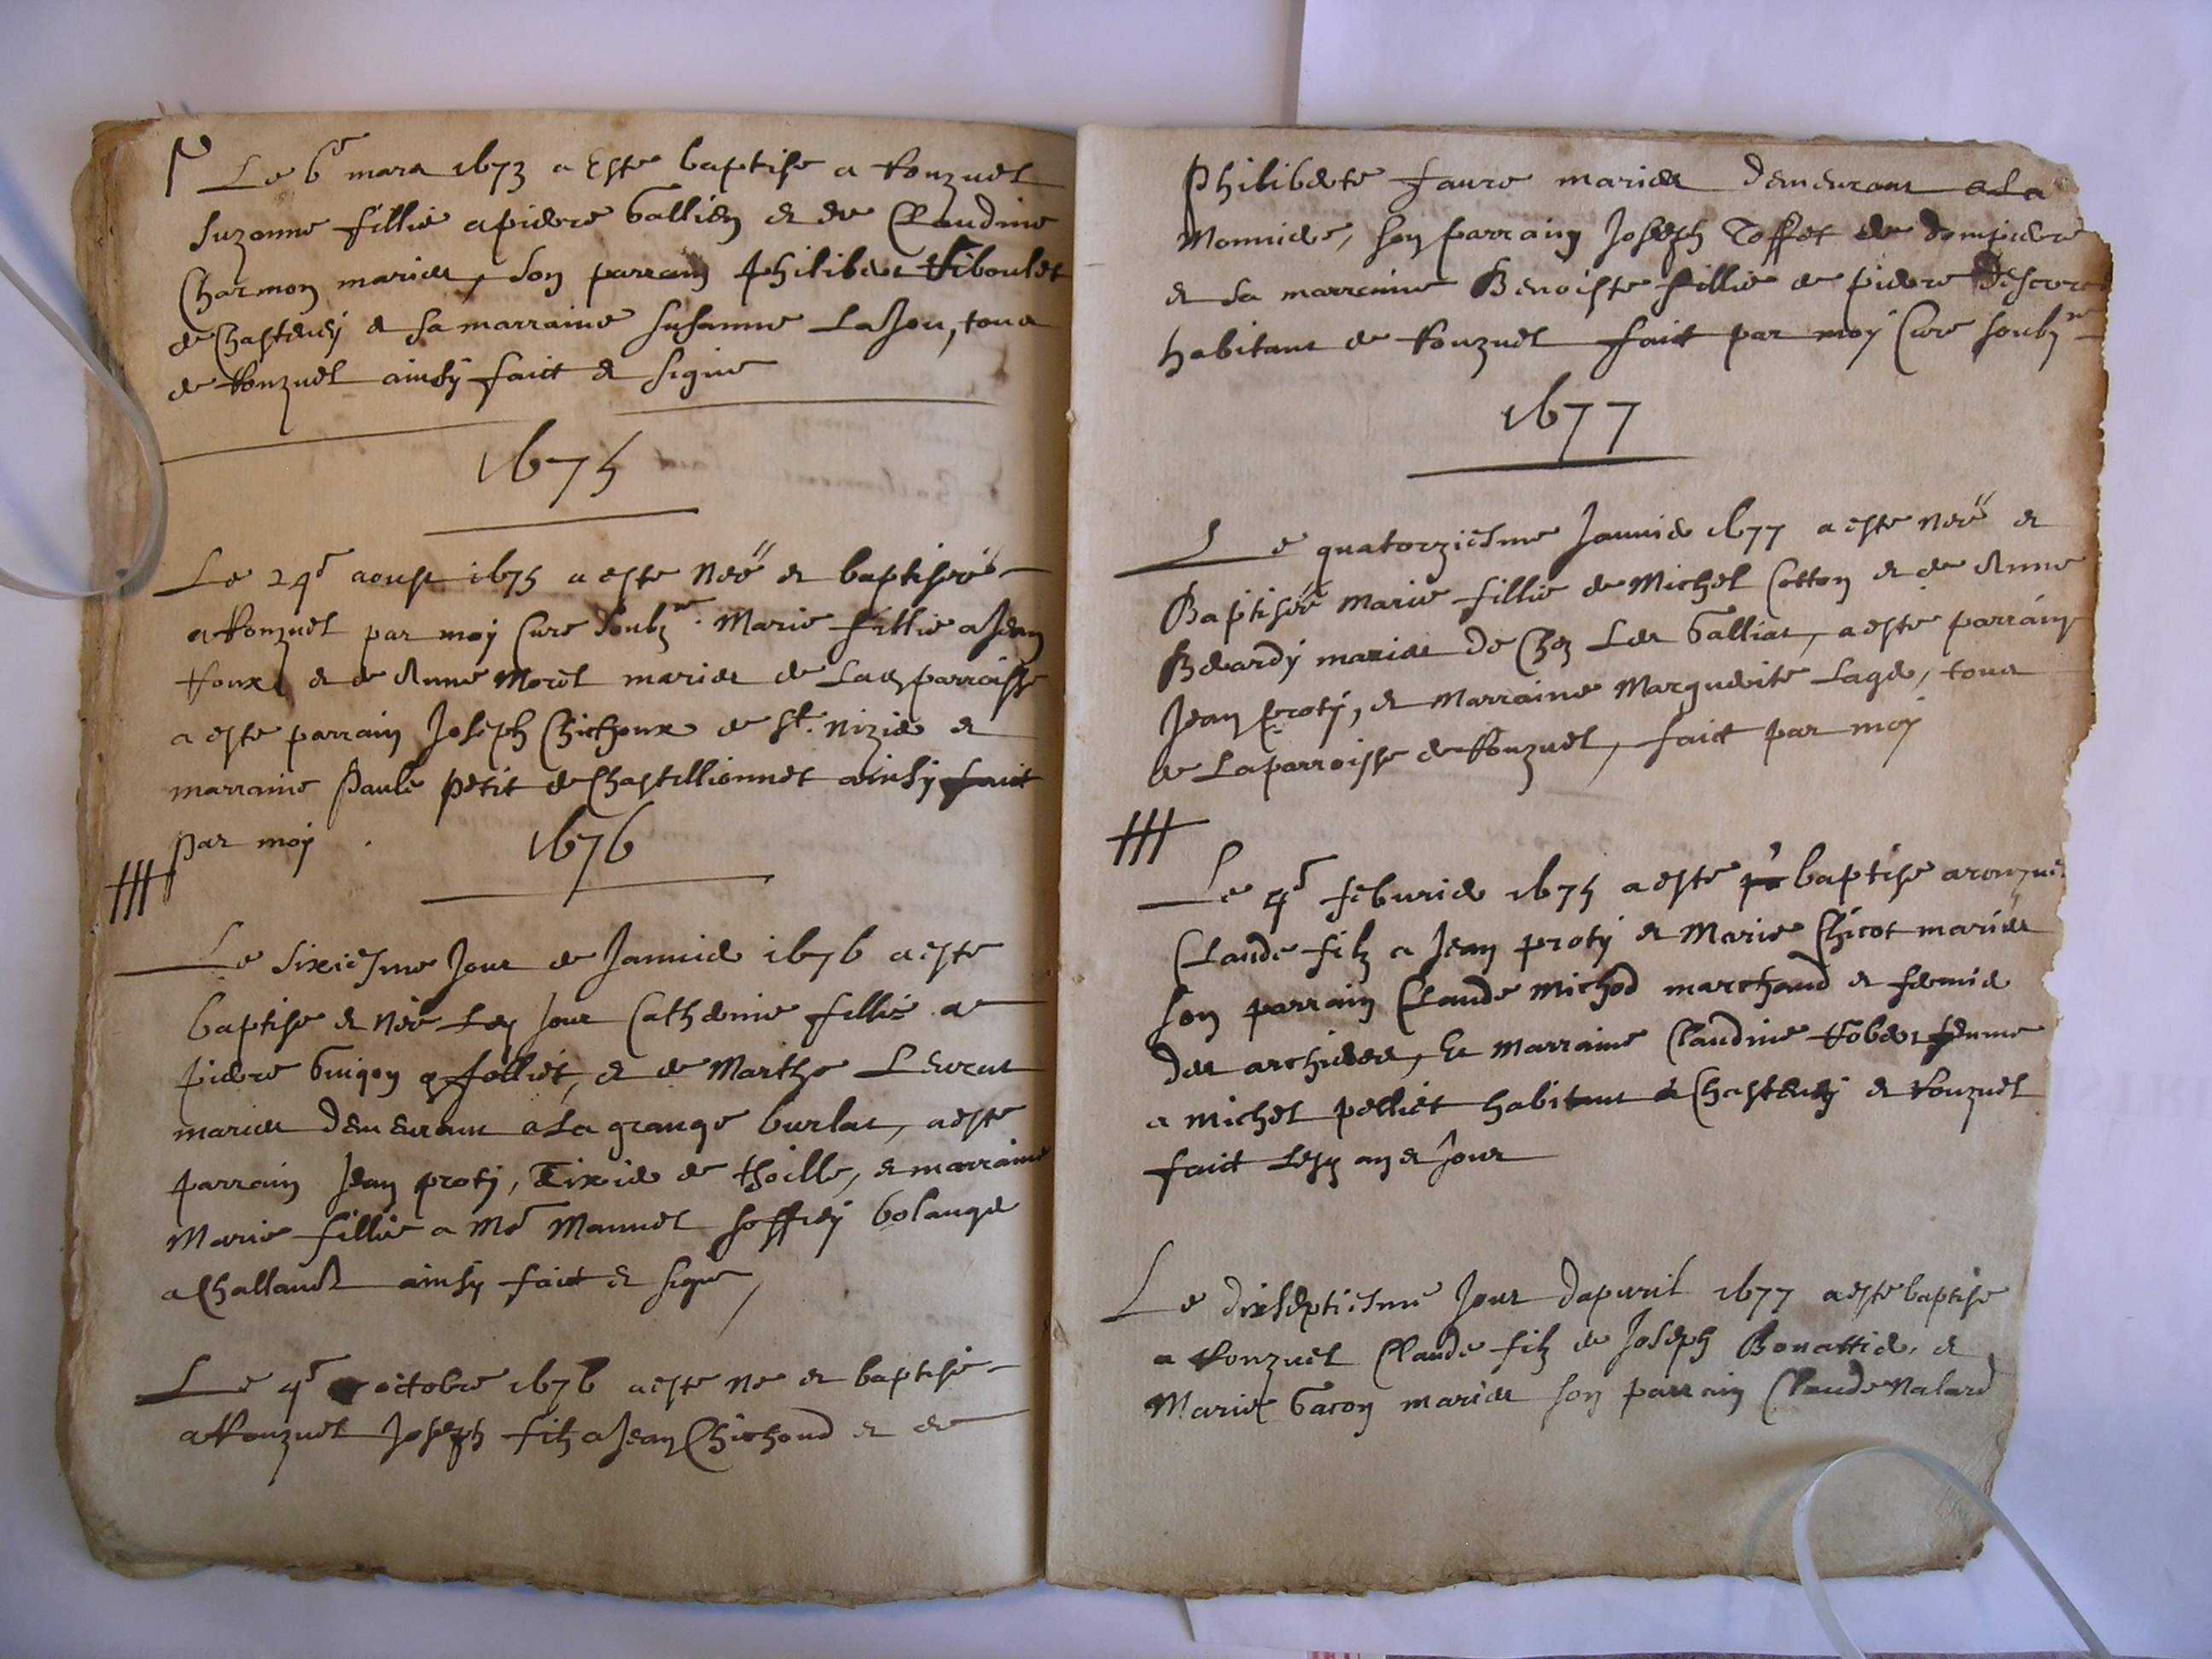 Le 6e mars 1673 a Este baptise a Ronzuel
Suzanne fillie a pierre Gallien et de Claudine
Charmon maries, son parrain Philibert Riboulet
de Chasteney et sa marraine Susanne Lajou, tous
de Ronzuel ainsy faict et signe
1675
Le 24e aoust 1675 a este Neé et baptiseé
a Ronzuel par moy Cure Soubzne. Marie fillie a Jean
Roux et de Anne Morel maries de Lad parroisse
a este parrain Joseph Chichoux de St. Nizie et
marraine Paule petit de Chastillionnet ainsy faict
par moy .
1676
Le Sixiesme Jour de Janvie 1676 a este
baptise et Neé Led Jour Catherine fillie a
pierre Guigon folliet, et de Marthe Levrat
maries demeurant a La grange burlat, a este
parrain Jean proty, Tixie de thoille, et marraine
Marie fillie a Me Manuel Joffrey bolange
a Challaud ainsy faict et signe
Le 4e octobre 1676 a este Ne et baptise
a Ronzuel Joseph filz a Jean Chichoud et de
Philiberte faure maries demeurant a La
Monnide, son parrain Joseph Toffet de dompierre
et sa marraine Benoiste fillie de pierre
habitans de Ronzuel faict par moy Cure soubzne
1677
Le quatorziesme Janvie 1677 a este Neé et
Baptiseé Marie fillie de Michel Cotton et de Anne
Berardy maries de Chez Les Galliat, a este parrain
Jean proty, et Marraine Marguerite Lage, tous
de La parroisse de Ronzuel, faict par moy
Le 4e feburie 1675 a este baptise a ronzue
Claude filz a Jean proty et Marie Chicot maries
son parrain Claude Michod marchand et fermie
des archieves, Et Marraine Claudine Robert femme
a Michel pelliet habitant a Chasteney et Ronzuel
faict Lesd an et Jour
Le dixseptiesme Jour dapuril 1677 a este baptise
a Ronzuel Claude filz de Joseph Bonattie, et
Marie Gacon maries son parrain Claude Nalard